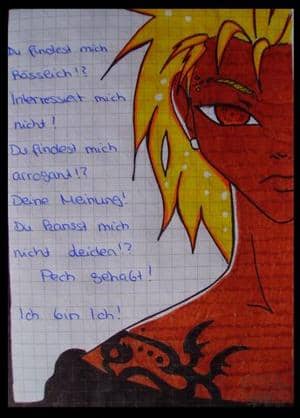 Du findest mich
hässlich!?
Interressiert mich
nicht!
Du findest mich
arrogant!?
Deine Meinung!
Du kannst mich
nicht leiden!?
Pech gehabt!
Ich bin Ich!